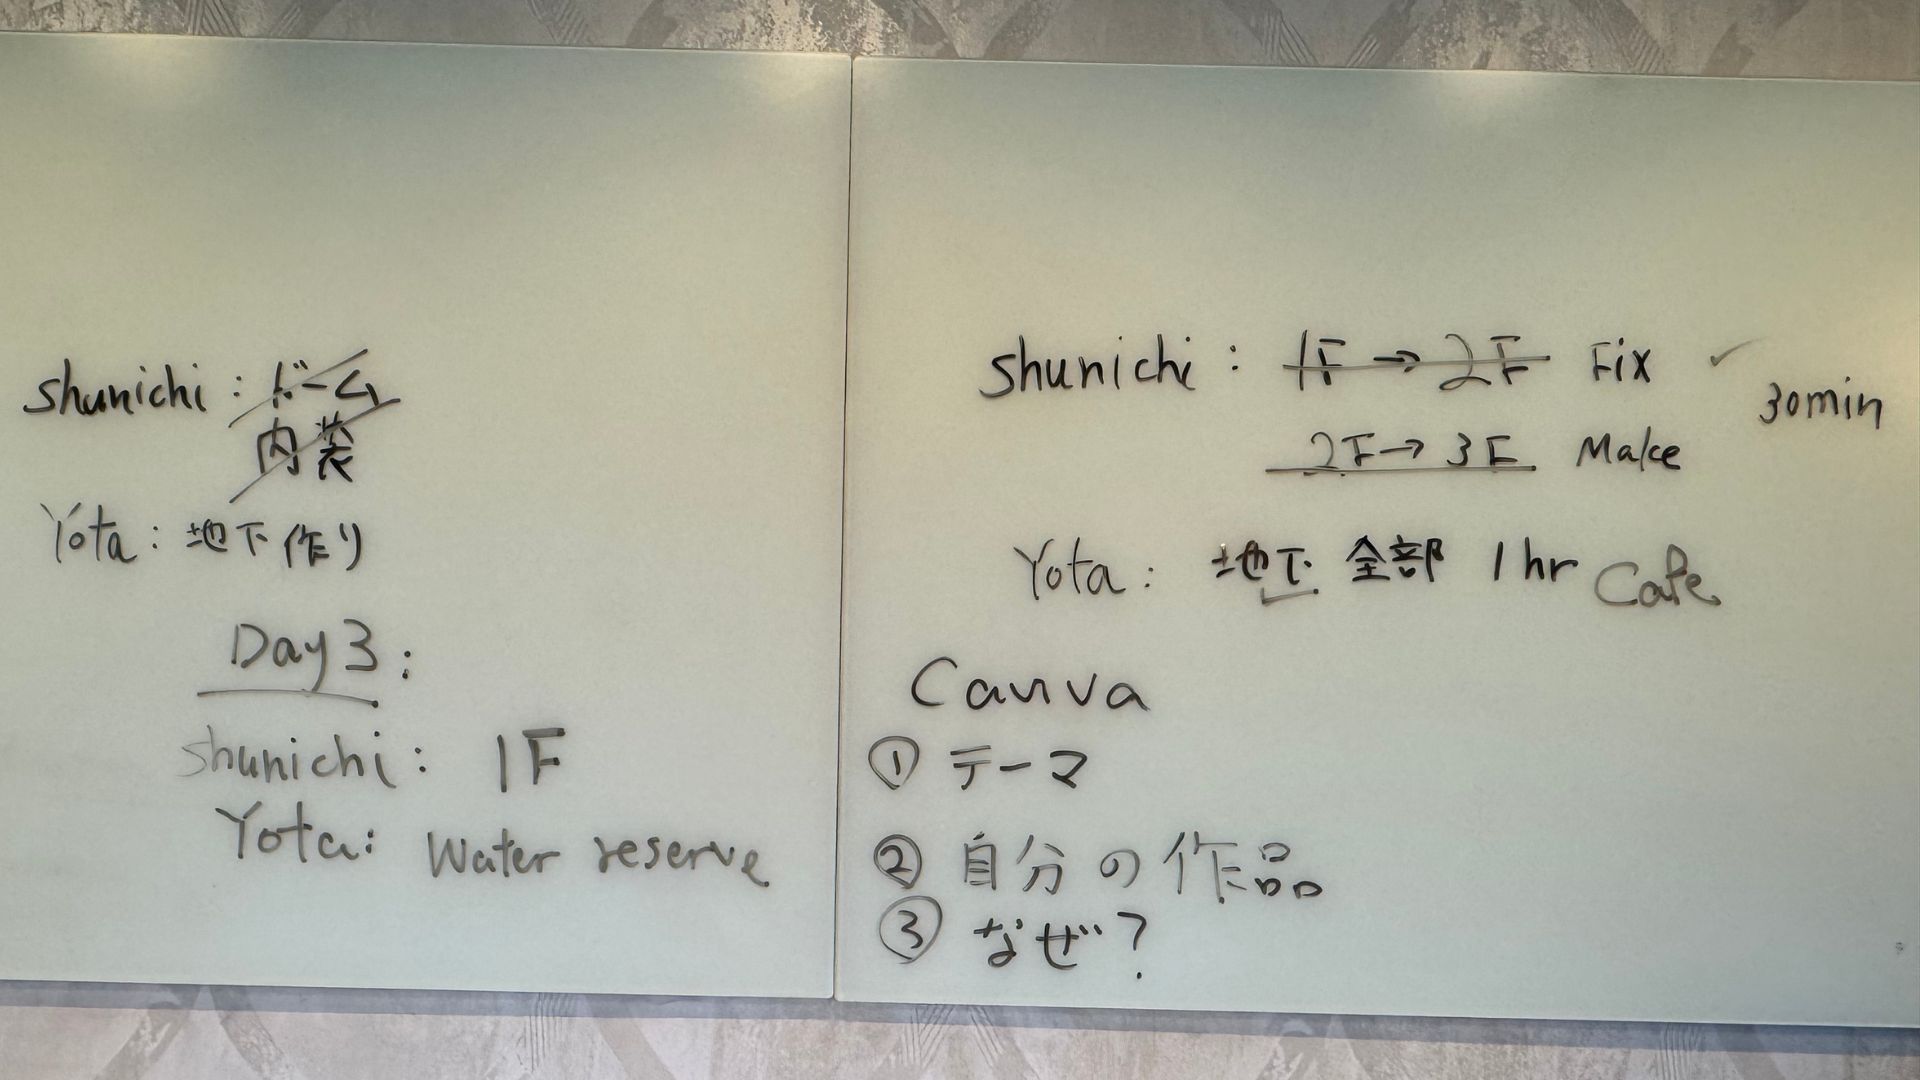 Shunichi : ドーム
内装
Yota : 地下作り
Day 3 :
Shunichi : 1F
Yota : Water reserve
Shunichi : 1F → 2F Fix ✓
30min
2F → 3F Make
Yota : 地下 全部 1 hr Cafe
Canva
① テーマ
② 自分の作品
③ なぜ?